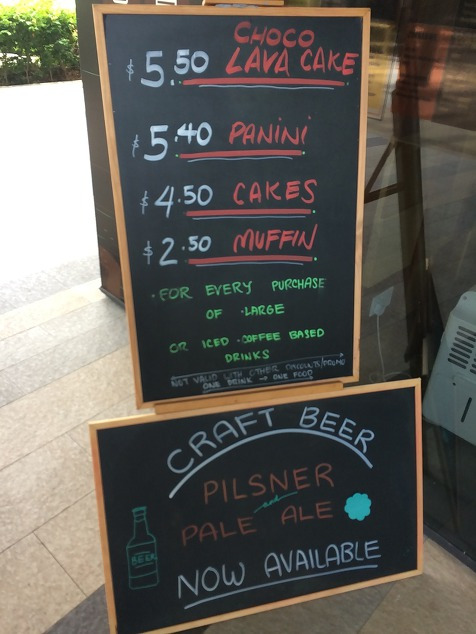 CHOCO
$5.50 LAVA CAKE
$5.40 PANINI
$4.50 CAKES
$2.50 MUFFIN
·FOR EVERY PURCHASE
OF ·LARGE
OR ICED ·COFFEE BASED
DRINKS
NOT VALID WITH OTHER DISCOUNTS/PROMO
ONE DRINK → ONE FOOD
CRAFT BEER
PILSNER
and
PALE ALE
BEER
NOW AVAILABLE